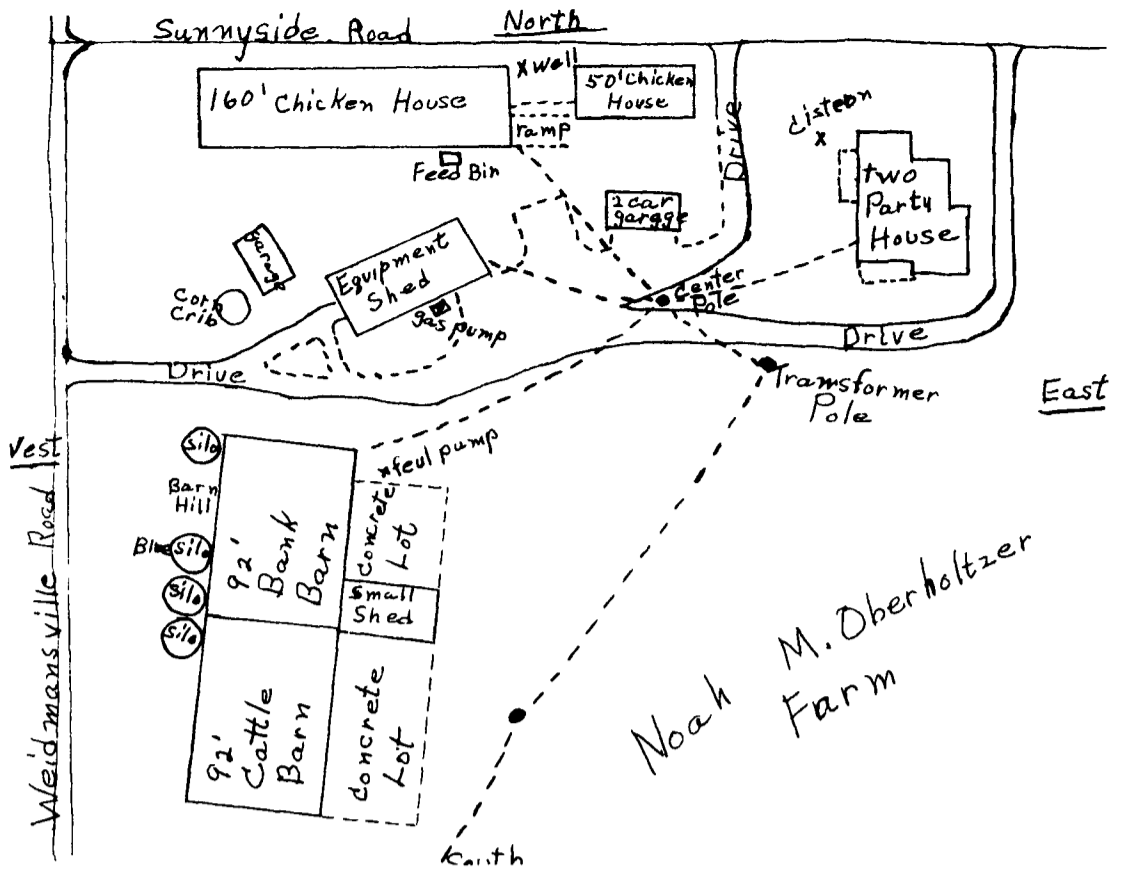 North
Sunnyside Road
x well
160' Chicken House
50' Chicken
House
ramp
Feed Bin
Drive
Cisteon
x
two
Party
House
2 car
garage
garage
Equipment
Shed
Corn
Crib
gas pump
Center
Pole
Drive
Drive
Transformer
Pole
East
West
Weidmansville Road
silo
Barn
Hill
Blue silo
silo
silo
x feul pump
92'
Bank
Barn
concrete
Lot
Small
Shed
92'
Cattle
Barn
concrete
Lot
Noah M. Oberholtzer
Farm
South